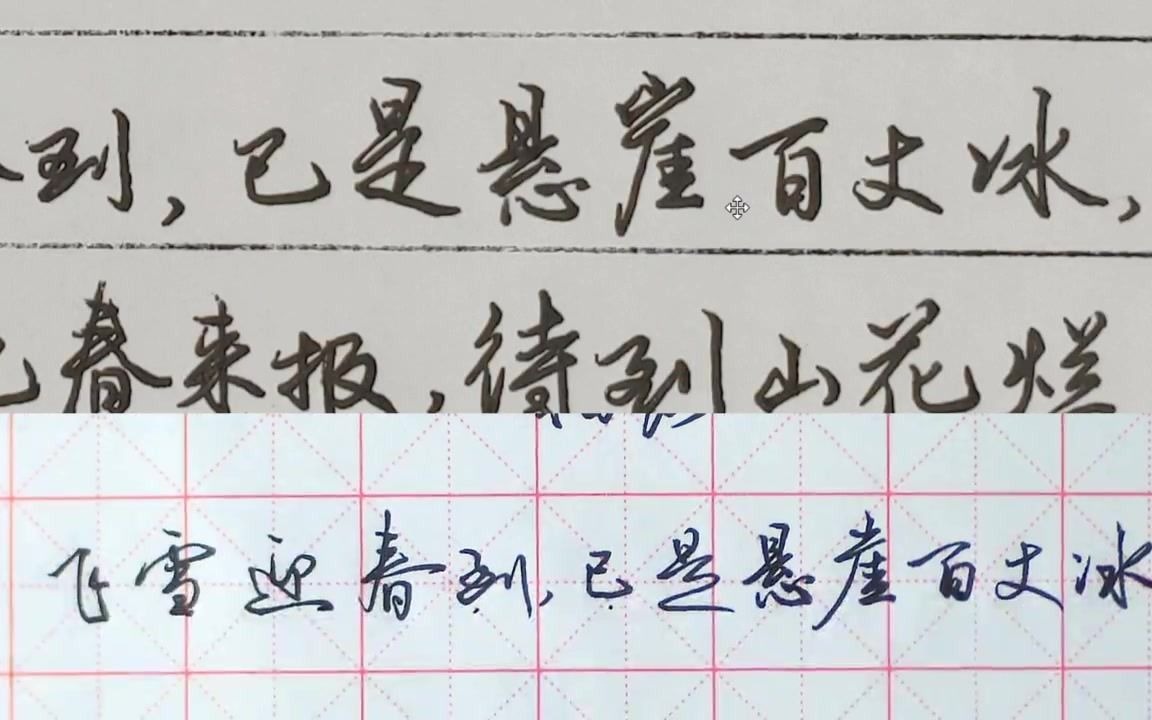 到,已是悬崖百丈冰,
春来报,待到山花烂
飞雪迎春到,已是悬崖百丈冰